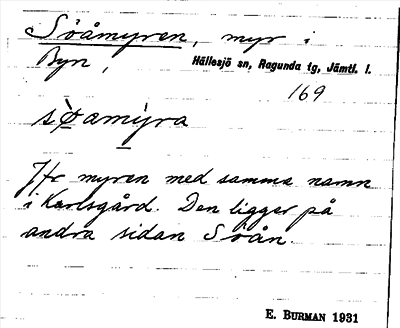 Söåmyren, myr i
Byn, Hällesjö sn, Ragunda tg, Jämtl. l.
169
sø̀amýra
Jfr myren med samma namn
i Karlsgård. Den ligger på
andra sidan Söån.
E. BURMAN 1931